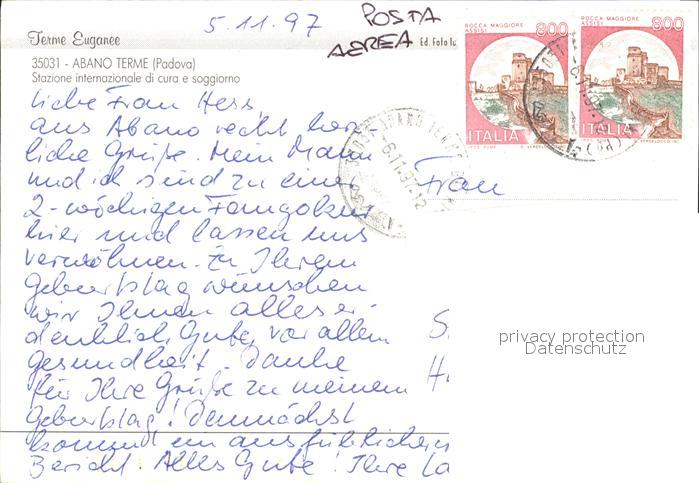 5.11.97
POSTA
AEREA
Terme Euganee
Ed. Foto
35031 - ABANO TERME (Padova)
Stazione internazionale di cura e soggiorno
ROCCA MAGGIORE
ASSISI
800
ITALIA
ROCCA MAGGIORE
ASSISI
800
ITALIA
ABANO TERME
6.11.97.12
Liebe Frau Hess,
aus Abano recht herz-
liche Grüße. Mein Mann
und ich sind zu einer
Frau
2-wöchigen Fangokur
hier und lassen uns
verwöhnen. Zu Ihrem
Geburtstag wünschen
wir Ihnen alles er-
denklich Gute, vor allem
Gesundheit. Danke
für Ihre Grüße zu meinem
Geburtstag! Demnächst
kommt ein ausführlicher
Bericht. Alles Gute! Ihre
privacy protection
Datenschutz